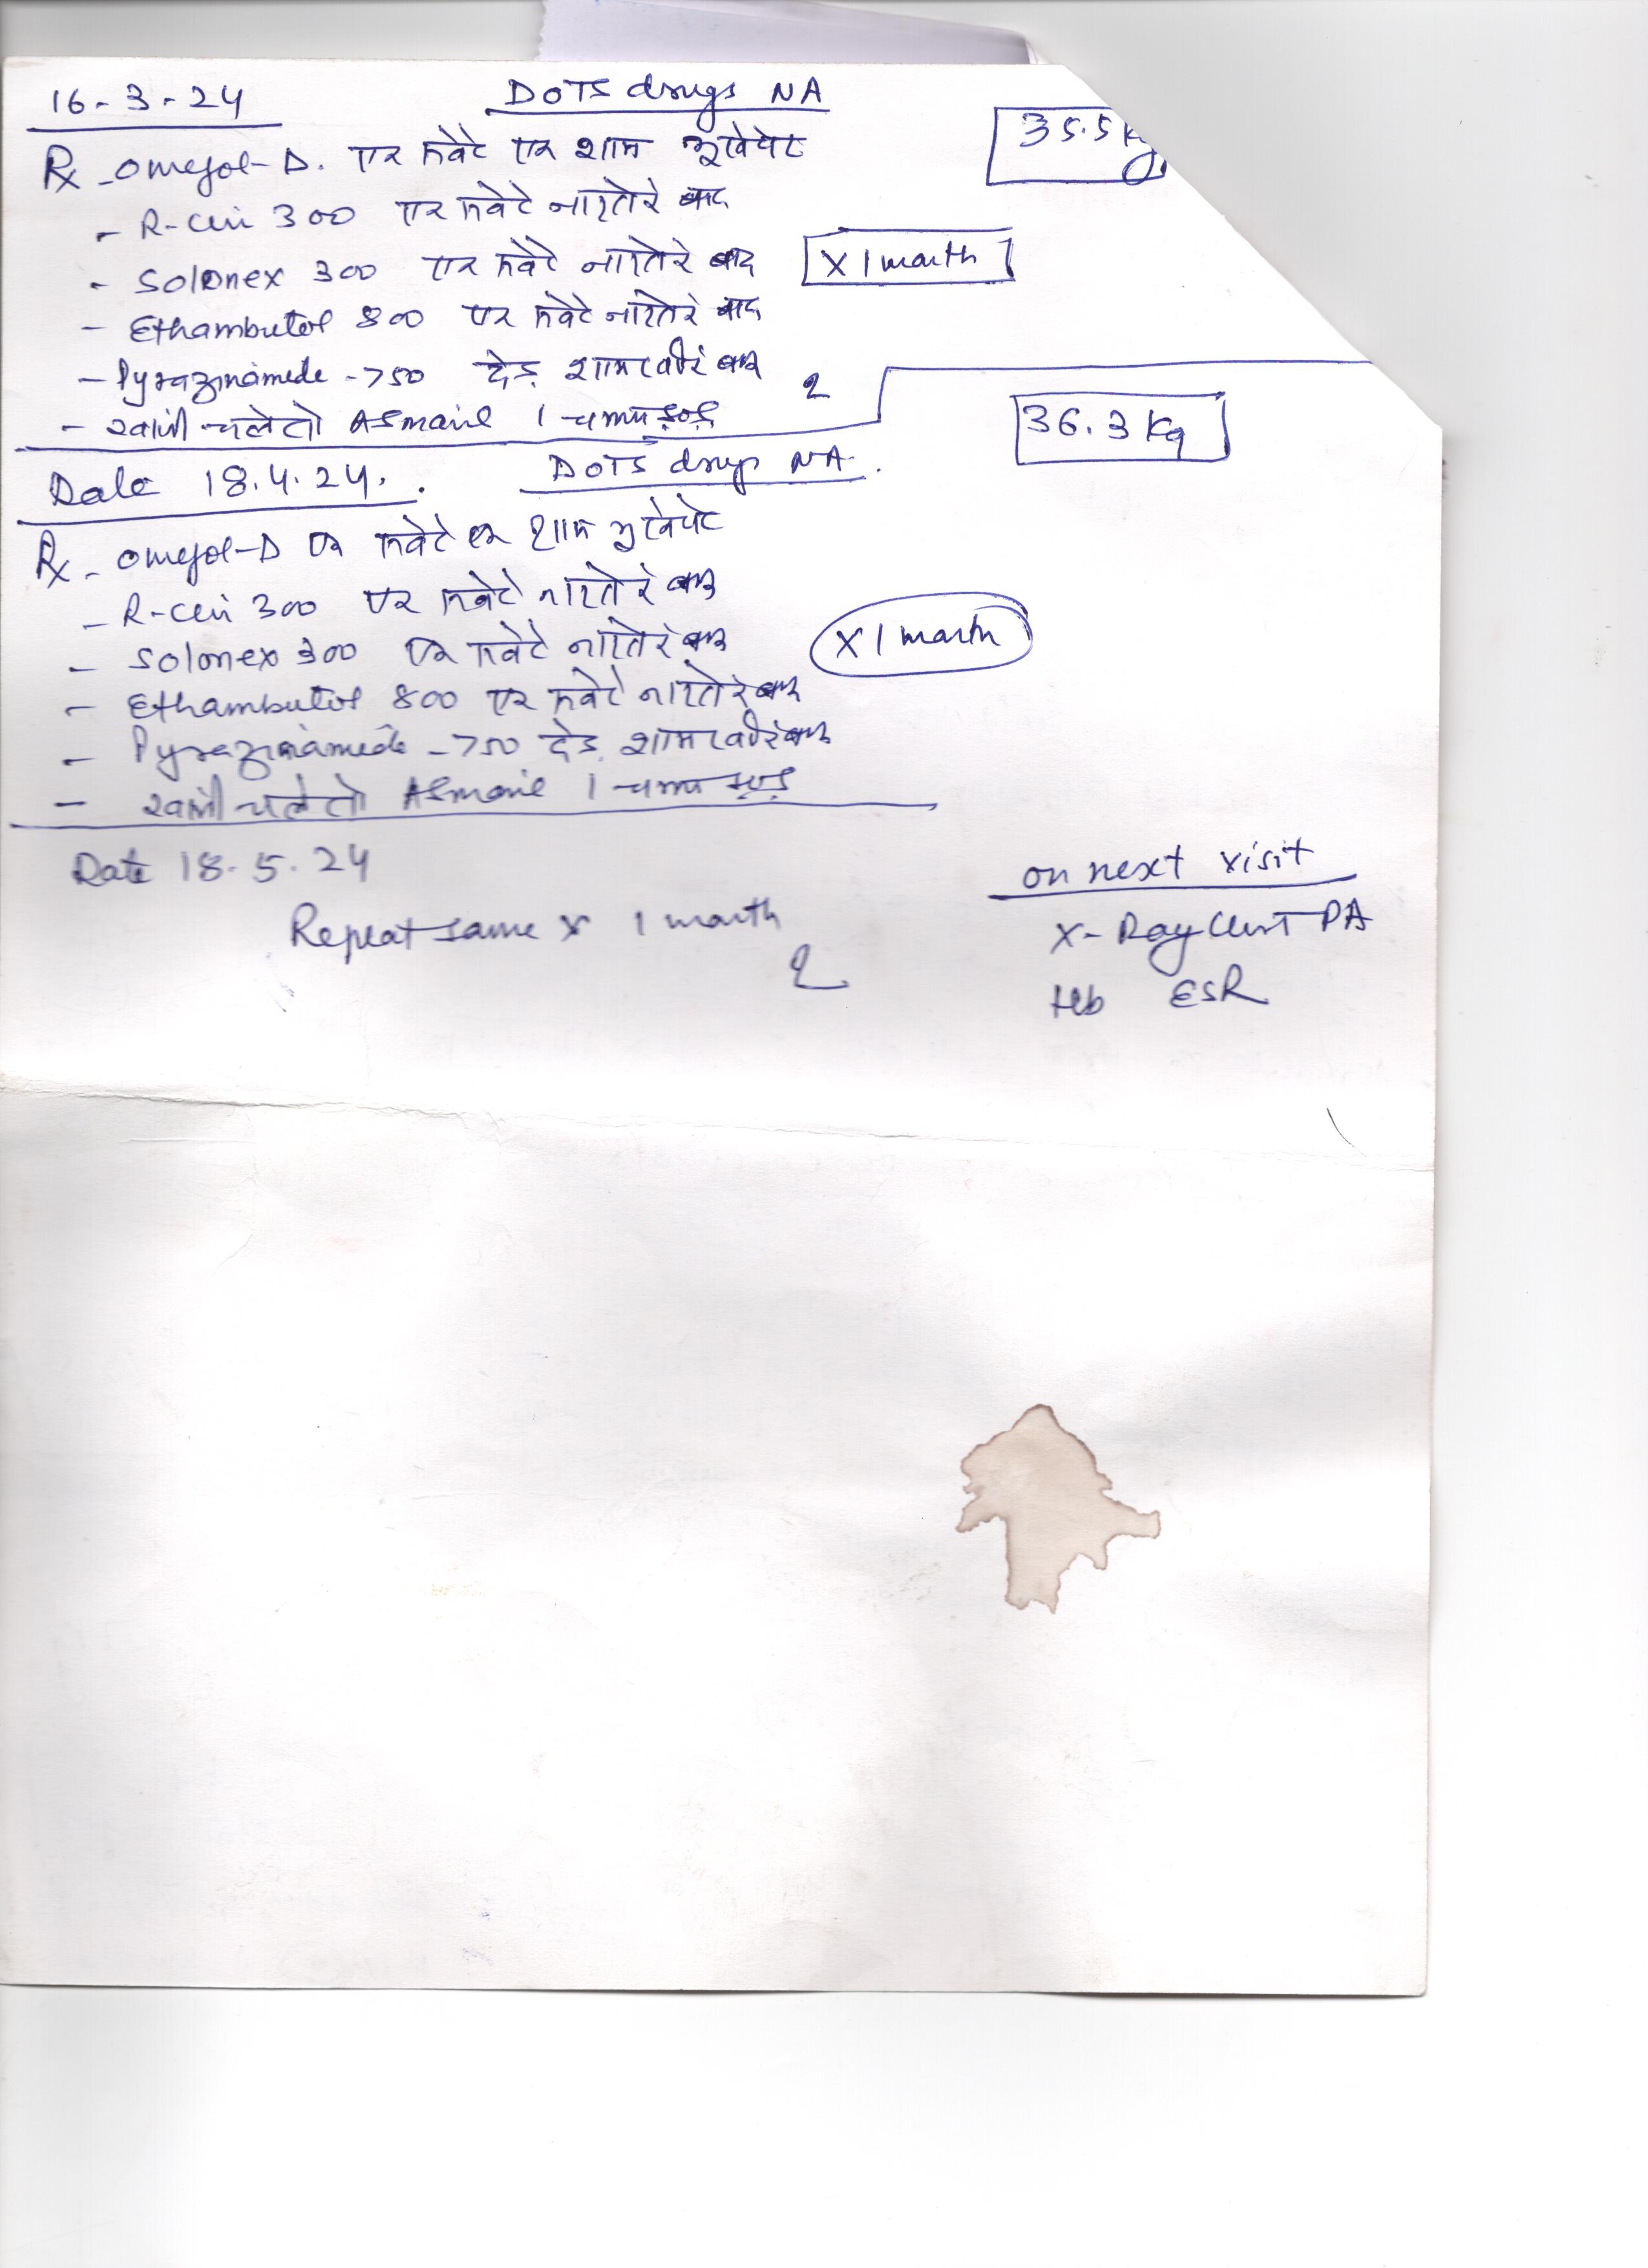 16-3-24
DOTS drugs NA
35.5 Kg
Rx - omezol-D. एक सवेरे एक शाम भूखे पेट
- R-cin 300 एक सवेरे नाश्ते के बाद
- Solonex 300 एक सवेरे नाश्ते के बाद
X 1 month
- Ethambutol 800 एक सवेरे नाश्ते के बाद
- Pyrazinamide -750 देड़ शाम के बाद
- खांसी चले तो 1 चम्मच
36.3 Kg
Date 18.4.24.
DOTS drugs NA.
Rx - omezol-D एक सवेरे एक शाम भूखे पेट
- R-cin 300 एक सवेरे नाश्ते के बाद
- Solonex 300 एक सवेरे नाश्ते के बाद
X 1 month
- Ethambutol 800 एक सवेरे नाश्ते के बाद
- Pyrazinamide -750 देड़ शाम के बाद
- खांसी चले तो 1 चम्मच
Date 18.5.24
Repeat same x 1 month
on next visit
X-Ray Chest PA
Hb ESR